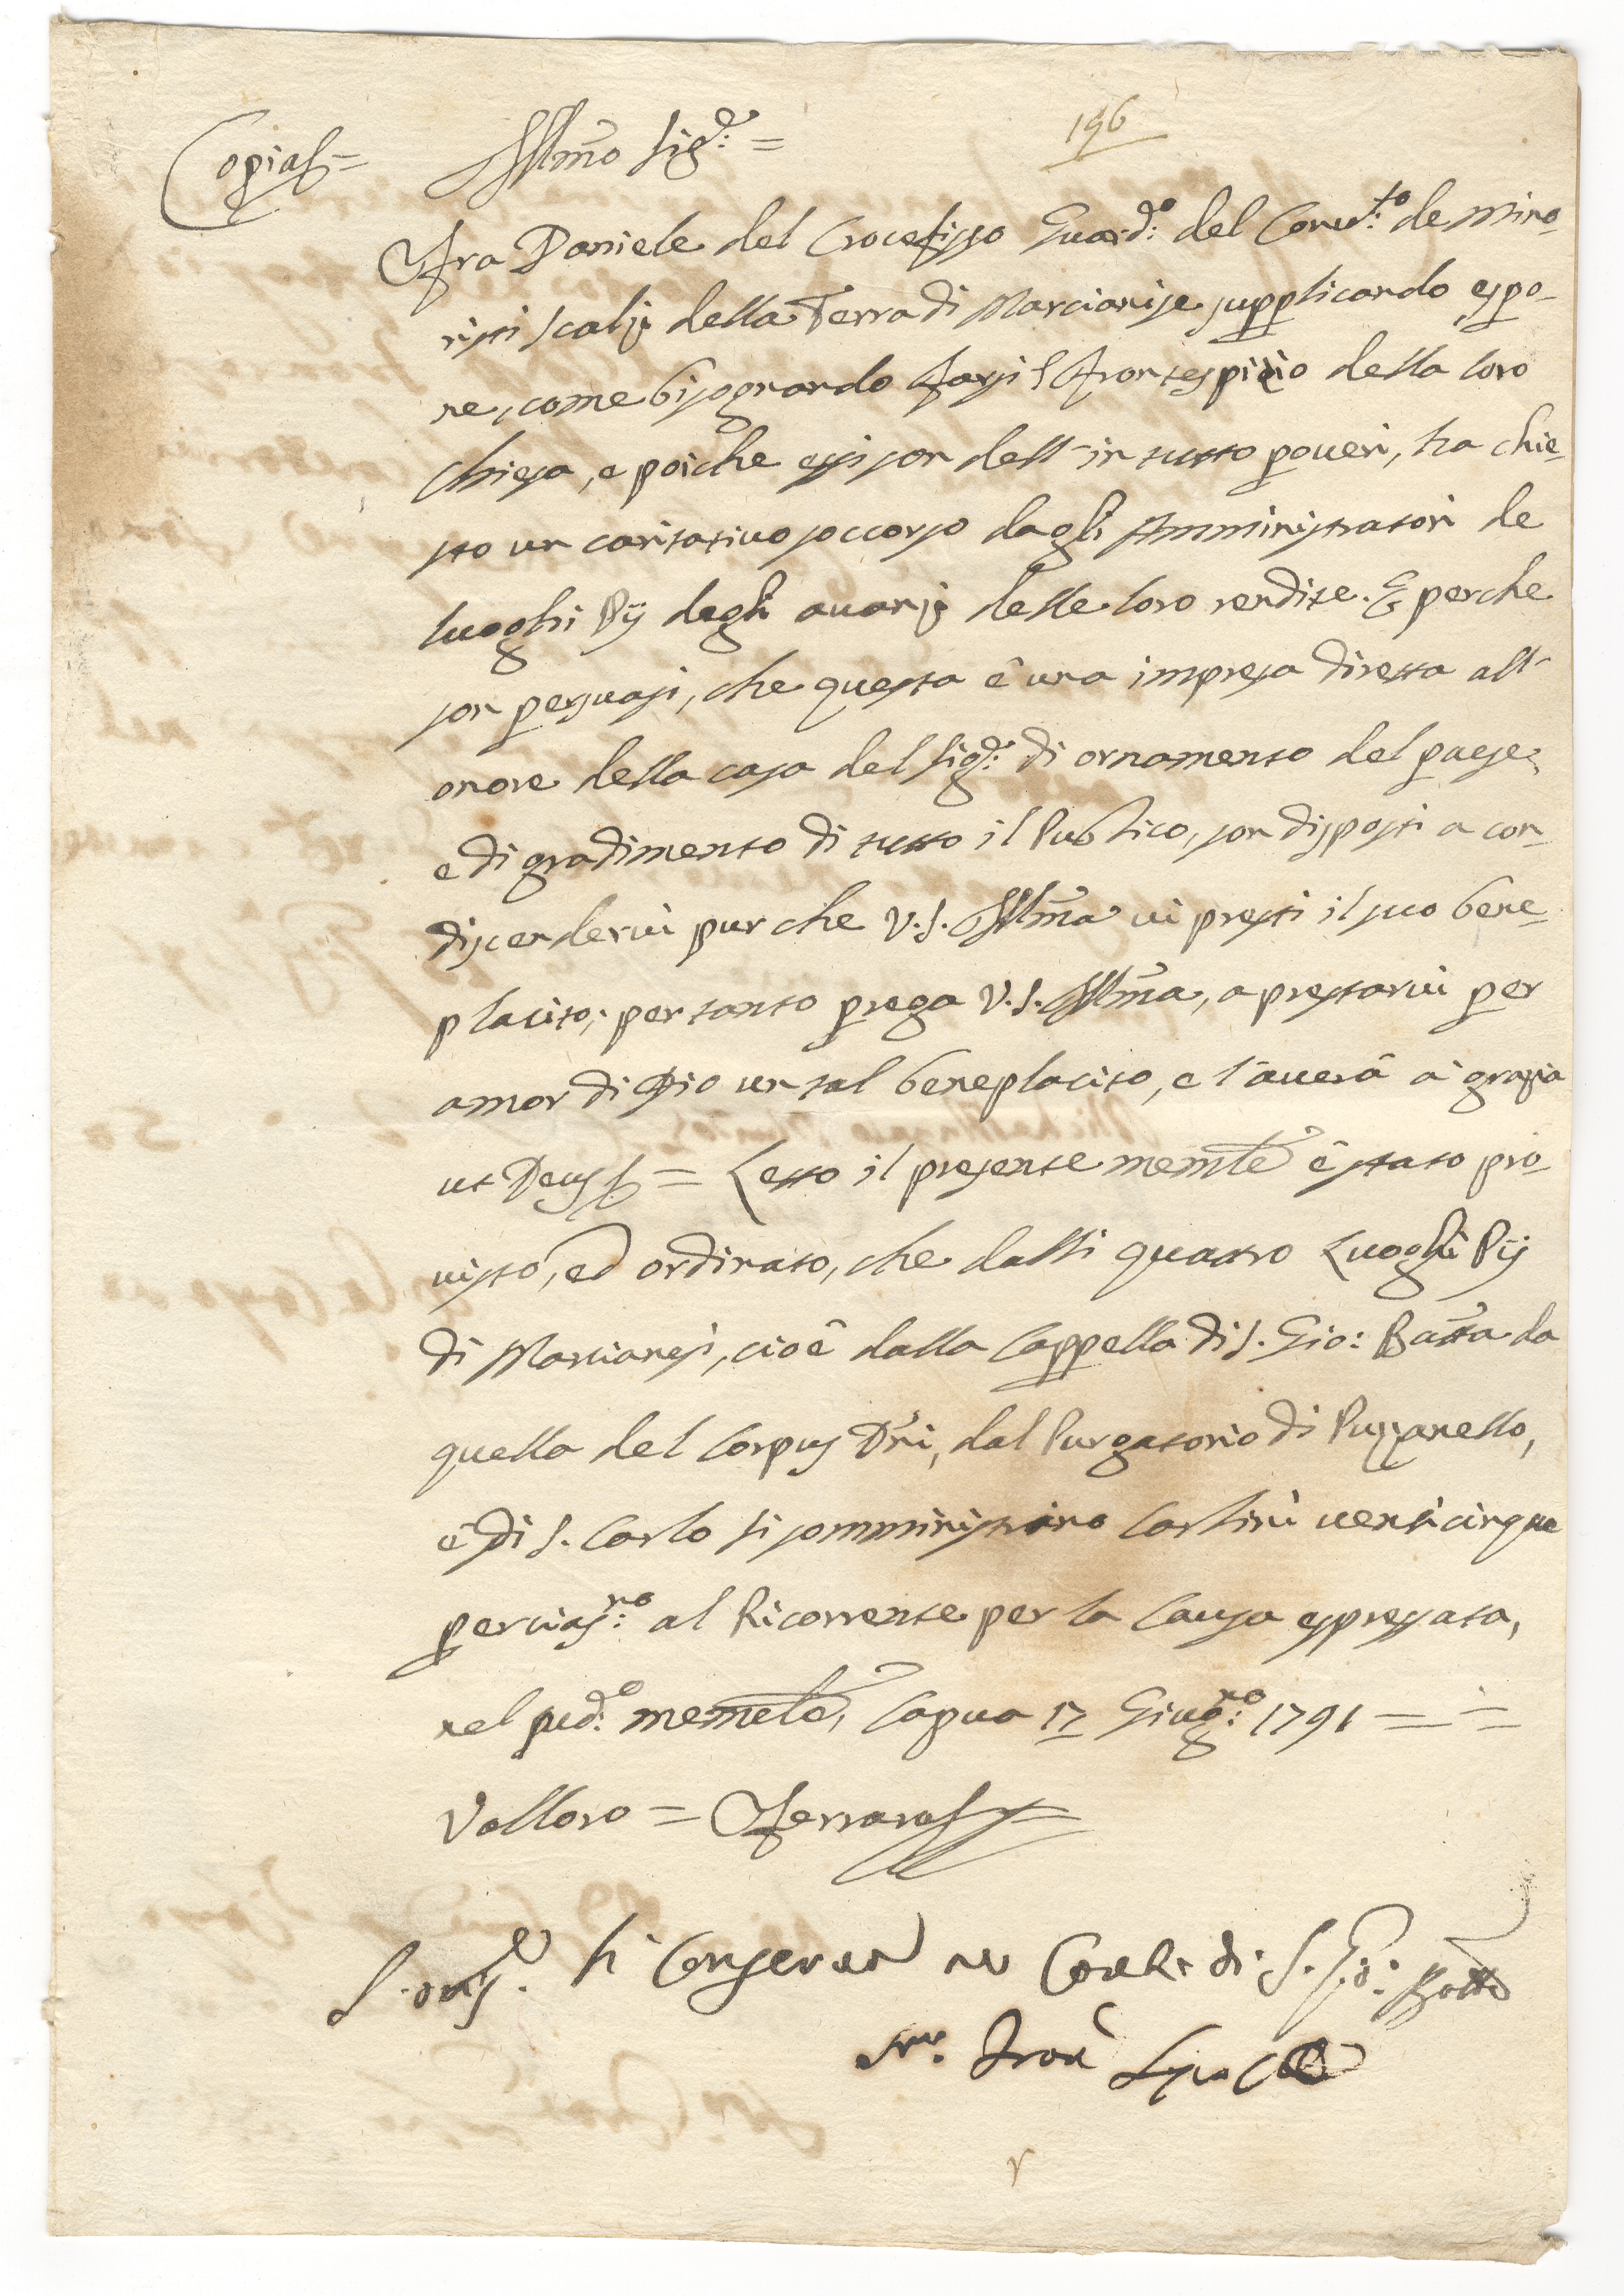 196
Copia = Ill͞mo Sig.r =
Fra Daniele del Crocefisso Guard.o del Conv.to de Mino-
risti Scalzi della Terra di Marcianise supplicando espo-
ne, come bisognando farsi l frontespizio della loro
Chiesa, e poiche essi son dell' in tutto poveri, ha chie-
sto un caritativo soccorso dagli Amministratori de
luoghi Pij degli avanzi delle loro rendite. E perche
son persuasi, che questa ê una impresa diretta all'
onore della casa del Sig.r di ornamento del paese,
e di gradimento di tutto il Publico, son disposti a con-
discendervi pur che V.S. Ill͞ma vi presti il suo bene-
placito; per tanto prega V.S. Ill͞ma, a prestarvi per
amor di Dio un tal beneplacito, e l'averâ a grazia
ut Deus = Letto il presente memle ê stato pro-
visto, ed ordinato, che dalli quattro Luoghi Pij
di Marcianesi, cioê dalla Cappella di S. Gio: Batta da
quella del Corpus D͞ni, dal Purgatorio di Puzzanello,
e di S. Carlo si somministrino Carlini venticinque
per ciasno: al Ricorrente per la Causa espressata,
nel sud.o memle, Capua 17 Giug.no 1791 = =
Valloro = Ferrara
L'orig.e si conserva di S. Gio: Batta